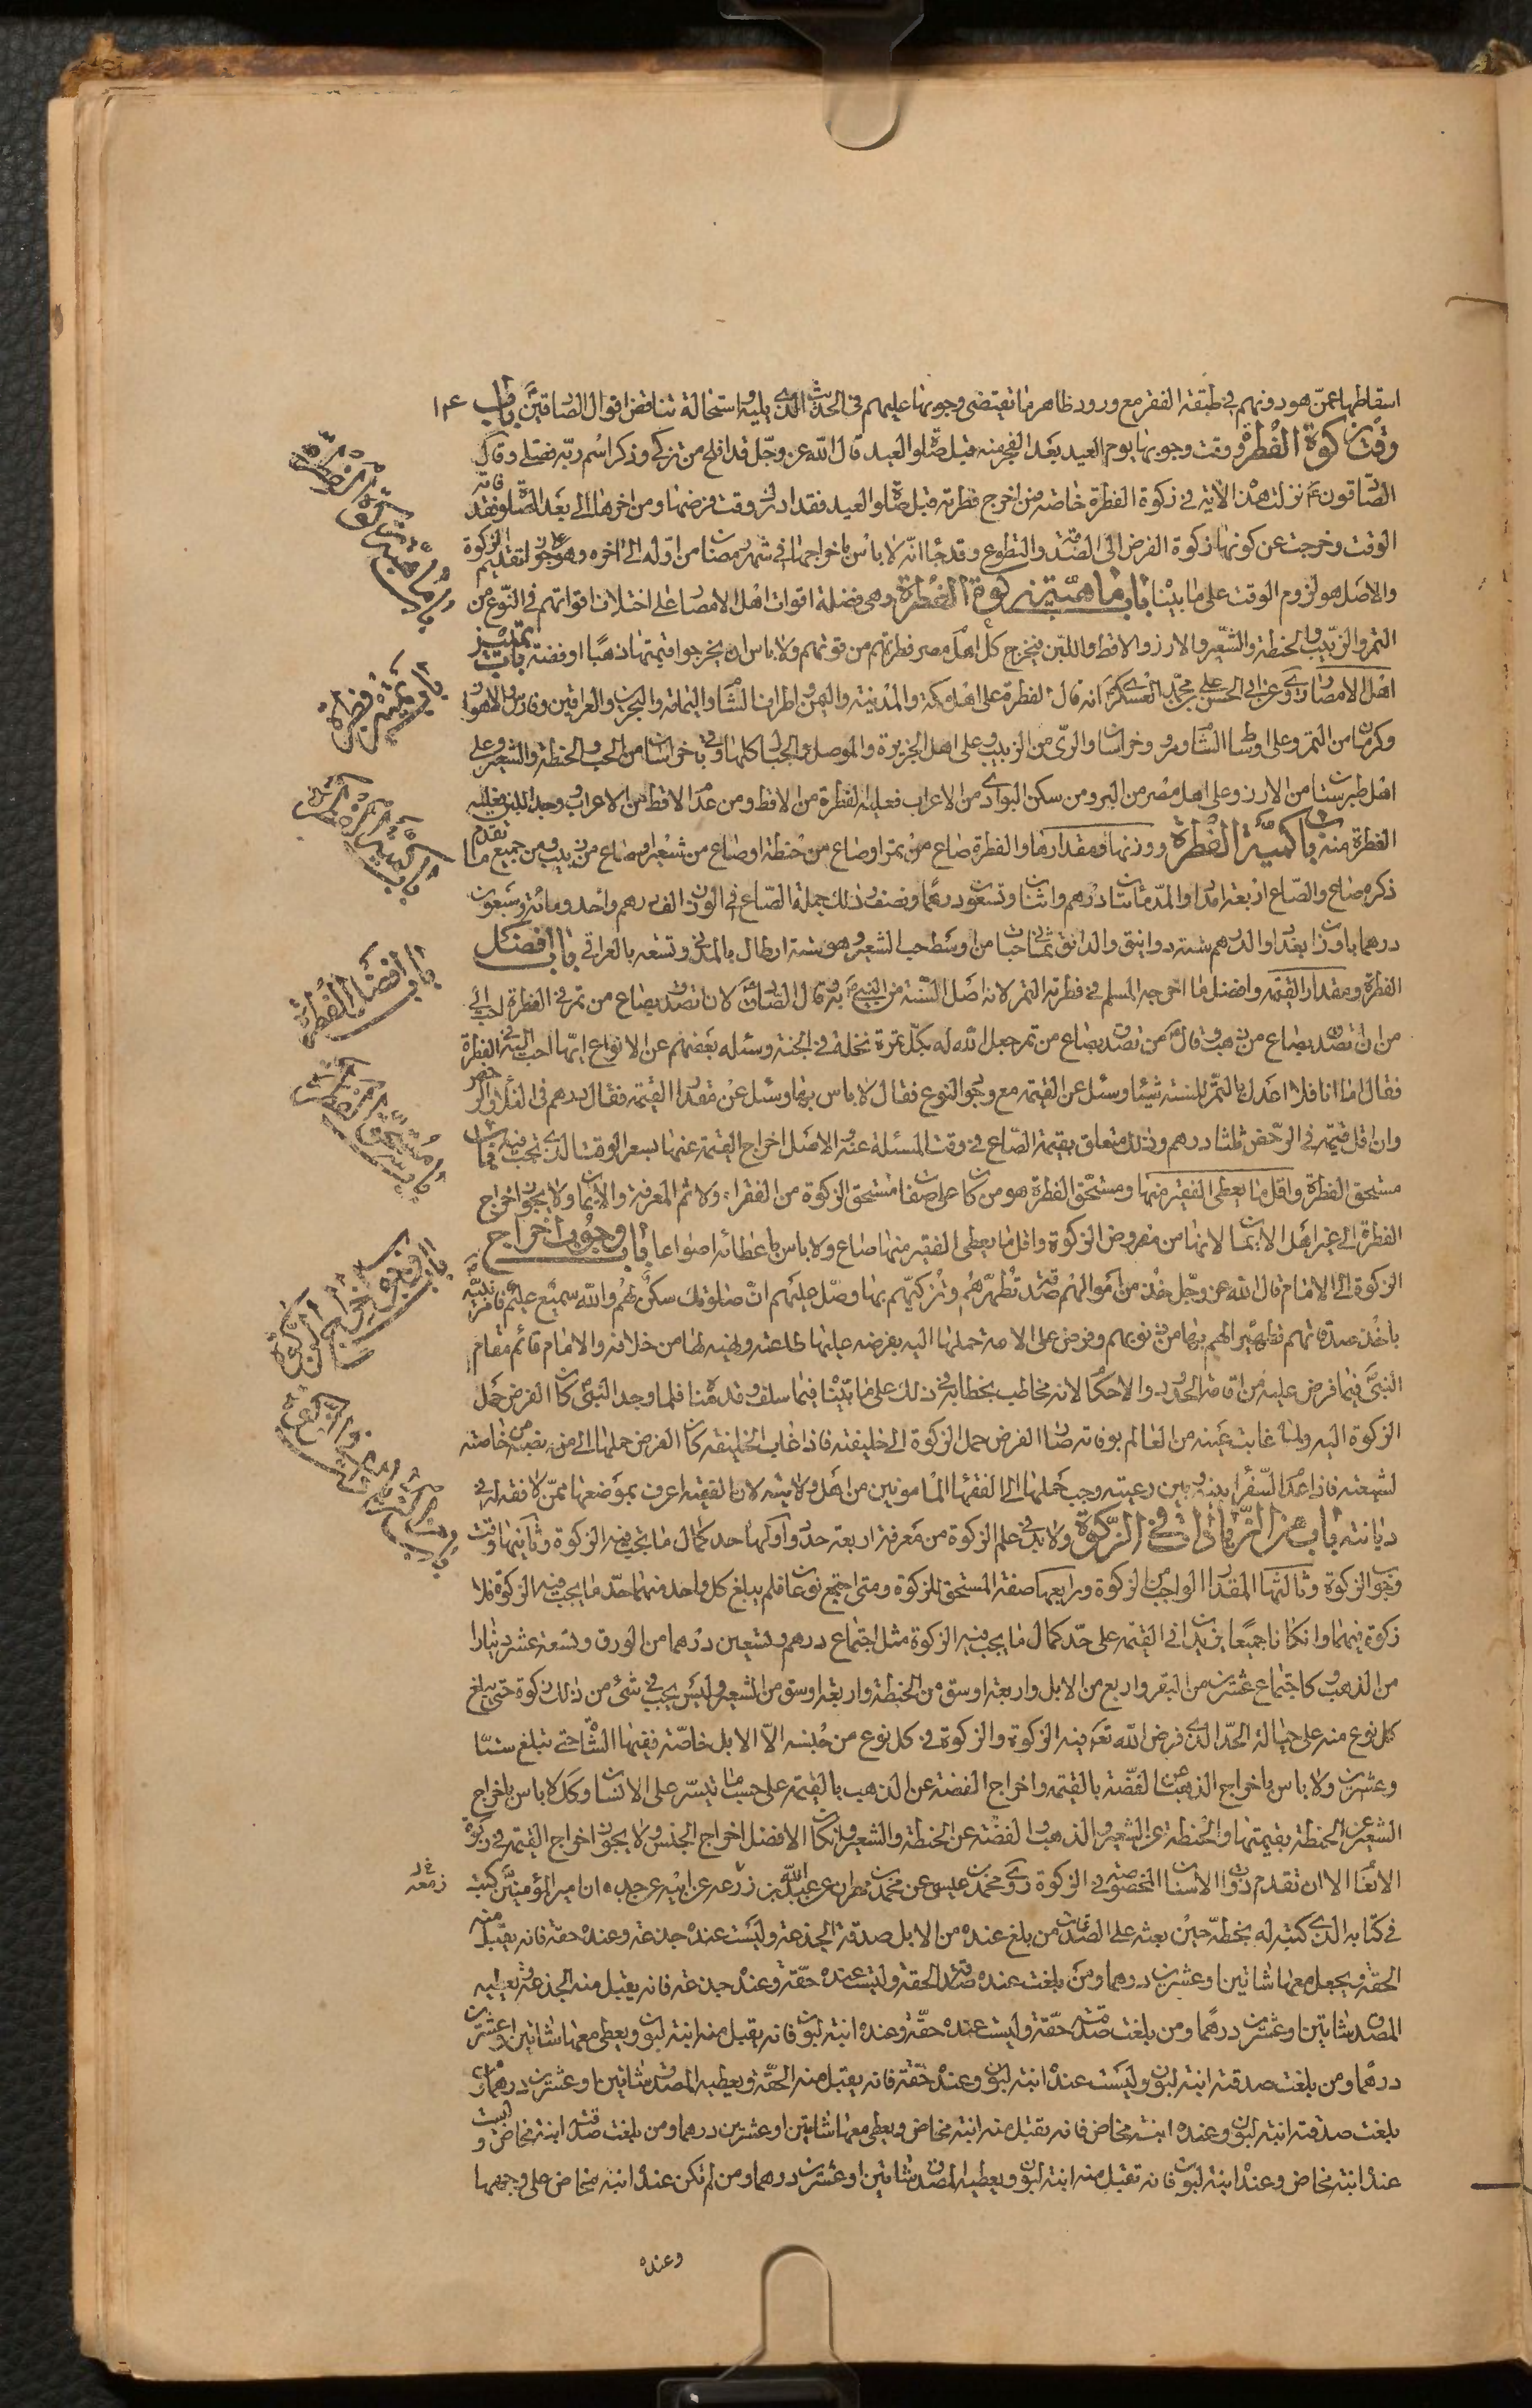 اسقاطها عمّن هو دونهم في طبقة الفقر مع ورود ظاهر ما تقتضى وجوبها عليهم في الحديث الذى يليه واستحالة تناقض اقوال الصادقين باب
وقت زكوة الفطرة ووقت وجوبها يوم العيد بعد الفجر منه قبل صلوة العيد قال الله عز وجل قد افلح من تزكى وذكر اسم ربه فصلى وقال
الصادقون ع نزلت هذه الاية في زكوة الفطرة خاصة فمن اخرج فطرته قبل صلوة العيد فقد ادرك وقت فرضها ومن اخرها الى بعد الصلوة فقد فاته
الوقت وخرجت عن كونها زكوة الفرض الى الصدقة والتطوع وقد جاء انه لا باس باخراجها في شهر رمضان من اوله الى اخره وهو على جواز تقديم الزكوة
والاصل هو لزوم الوقت على ما بيناه باب ماهية زكوة الفطرة وهى فضلة اقوات اهل الامصار على اختلاف اقواتهم في النوع من
التمر والزبيب والحنطة والشعير والارز والاقط واللبن فيخرج كل اهل مصر فطرتهم من قوتهم ولا باس ان يخرجوا قيمتها ذهبا او فضة باب تمييز
اهل الامصار روى عن ابى الحسن على بن محمد العسكرى انه قال الفطرة على اهل مكة والمدينة واليمن واطراف الشام واليمامة والبحرين والعراقين وفارس والاهواز
وكرمان من التمر وعلى اوساط الشام ومرو وخراسان والرى من الزبيب وعلى اهل الجزيرة والموصل والجبال كلها وباقى خراسان من الحب الحنطة والشعير وعلى
اهل طبرستان من الارز وعلى اهل مصر من البر ومن سكن البوادى من الاعراب فعليه الفطرة من الاقط ومن عدم الاقط من الاعراب ووجد اللبن فعليه
الفطرة منه باب كمية الفطرة ووزنها ومقدارها والفطرة صاع من تمر او صاع من حنطة او صاع من شعير او صاع من زبيب ومن جميع ما تقدم
ذكره صاع والصاع اربعة امداد والمد مائتا درهم واثنان وتسعون درهما ونصف فذلك جملة الصاع في الوزن الف درهم واحد ومائة وسبعون
درهما باوزان بغداد والدرهم ستة دوانيق والدانق ثمانى حبات من اوسط حب الشعير وهو ستة ارطال بالمدنى وتسعة بالعراقى باب افضل
الفطرة ومقدار القيمة وافضل ما اخرجه المسلم في فطرته التمر لانه اصل السنة من النبى ص به وقال الصادق لان اتصدق بصاع من تمر في الفطرة احب الى
من ان اتصدق بصاع من ذهب وقال من تصدق بصاع من تمر جعل الله له بكل تمرة نخلة في الجنة وسئله بعضهم عن الانواع ايها احب اليه في الفطرة
فقال اما انا فلا اعدل بالتمر للسنة شيئا وسئل عن القيمة مع وجود النوع فقال لا باس بها وسئل عن مقدار القيمة فقال درهم في الغلاء والرخص
وان اقل قيمته في الرخص ثلثا درهم وذلك متعلق بقيمة الصاع في وقت المسئلة عنه والاصل اخراج القيمة عنها بسعر الوقت الذى تجب فيه باب
مستحق الفطرة واقل ما يعطى الفقير منها ومستحق الفطرة هو من كان على صفات مستحق الزكوة من الفقراء ولا ثم المعرفة والايمان ولا يجوز اخراج
الفطرة الى غير اهل الايمان لانها من مفروض الزكوة واقل ما يعطى الفقير منها صاع ولا باس باعطائه اصواعا باب وجوب اخراج
الزكوة الى الامام قال الله عز وجل خذ من اموالهم صدقة تطهرهم وتزكيهم بها وصل عليهم ان صلوتك سكن لهم والله سميع عليم فامر نبيه
باخذ صدقاتهم تطهيرا لهم بها من ذنوبهم وفرض على الامة حملها اليه بفرضه عليها طاعته ونهيه لها من خلافه والامام قائم مقام
النبى فيما فرض عليه من اقامة الحدود والاحكام لانه مخاطب بخطابه في ذلك على ما بيناه فيما سلف وقدمناه فلما وجد النبى كان الفرض حمل
الزكوة اليه ولما غابت عينه من العالم بوفاته صار الفرض حمل الزكوة الى خليفته فاذا غاب الخليفة كان الفرض حملها الى من نصبه من خاصته
لشيعته فاذا عدم السفراء بينه وبين رعيته وجب حملها الى الفقهاء المامونين من اهل ولايته لان الفقيه اعرف بموضعها ممن لا فقه له في
ديانته باب من الزيادات في الزكوة ولا بد في علم الزكوة من معرفة اربعة حدود اولها حد كمال ما تجب فيه الزكوة وثانيها وقت
وجوب الزكوة وثالثها المقدار الواجب من الزكوة ورابعها صفة المستحق للزكوة ومتى اجتمع نوعان فلم يبلغ كل واحد منهما حد ما يجب فيه الزكوة فلا
زكوة فيهما وان كانا جميعا يزيدان في القيمة على حد كمال ما يجب فيه الزكوة مثل اجتماع درهم وتسعين درهما من الورق وتسعة عشر دينارا
من الذهب وكاجتماع عشرين من البقر واربع من الابل واربعة اوسق من الحنطة واربعة اوسق من الشعير وليس يجب في شئ من ذلك زكوة حتى يبلغ
كل نوع منه على حياله الحد الذى فرض الله تعالى فيه الزكوة والزكوة في كل نوع من جنسه الا الابل خاصة ففيها الشاة حتى تبلغ ستا
وعشرين ولا باس باخراج الذهب عن الفضة بالقيمة واخراج الفضة عن الذهب بالقيمة على حسب ما تيسر على الانسان وكذلك لا باس باخراج
الشعير عن الحنطة بقيمتها والحنطة عن الشعير والذهب والفضة عن الحنطة والشعير وان كان الافضل اخراج الجنس ولا يجوز اخراج القيمة في زكوة
الانعام الا ان تقدم ذوات الاسنان المخصوصة في الزكوة روى محمد بن عيسى عن محمد بن مهران عن عبد الله بن زرعه عن ابيه عن جده ان امير المؤمنين كتب
في كتابه الذى كتبه له بخطه حين بعثه على الصدقات من بلغ عنده من الابل صدقة الجذعة وليست عنده جذعة وعنده حقة فانه يقبل منه
الحقة ويجعل معها شاتين او عشرين درهما ومن بلغت عنده صدقة الحقة وليست عنده حقة وعنده جذعة فانه يقبل منه الجذعة ويعطيه
المصدق شاتين او عشرين درهما ومن بلغت صدقته حقة وليست عنده حقة وعنده ابنة لبون فانه يقبل منه ابنة لبون ويعطى معها شاتين او عشرين
درهما ومن بلغت صدقته ابنة لبون وليست عنده ابنة لبون وعنده حقة فانه يقبل منه الحقة ويعطيه المصدق شاتين او عشرين درهما ومن
بلغت صدقته ابنة لبون وعنده ابنة مخاض فانه تقبل منه ابنة مخاض ويعطى معها شاتين او عشرين درهما ومن بلغت صدقته ابنة مخاض وليست
عنده ابنة مخاض وعنده ابنة لبون فانه تقبل منه ابنة لبون ويعطيه المصدق شاتين او عشرين درهما ومن لم تكن عنده ابنة مخاض على وجهها
وعنده
باب ماهية زكوة الفطرة
باب افضل الفطرة
باب وجوب اخراج الزكوة
زمعه